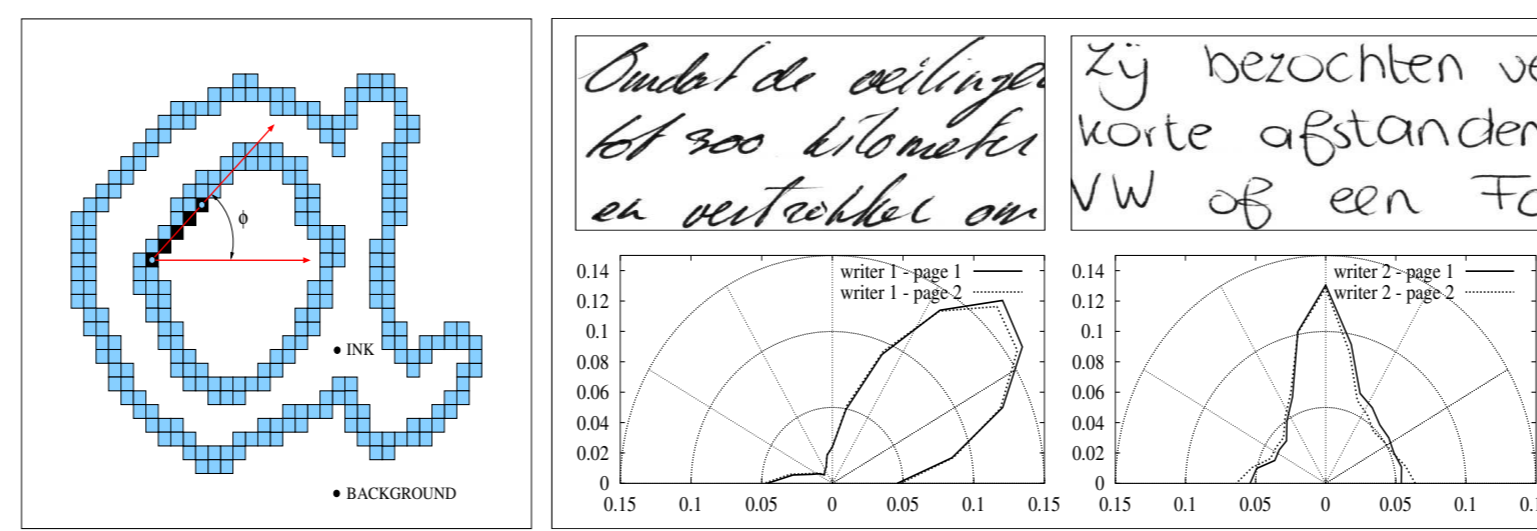 ϕ
INK
BACKGROUND
Omdat de veilingen
tot 300 kilometer
en vertrokken om
Zij bezochten ve
korte afstanden
VW of een Fo
writer 1 - page 1
writer 1 - page 2
0.14
0.12
0.1
0.08
0.06
0.04
0.02
0
0.15 0.1 0.05 0 0.05 0.1 0.15
writer 2 - page 1
writer 2 - page 2
0.14
0.12
0.1
0.08
0.06
0.04
0.02
0
0.15 0.1 0.05 0 0.05 0.1 0.1